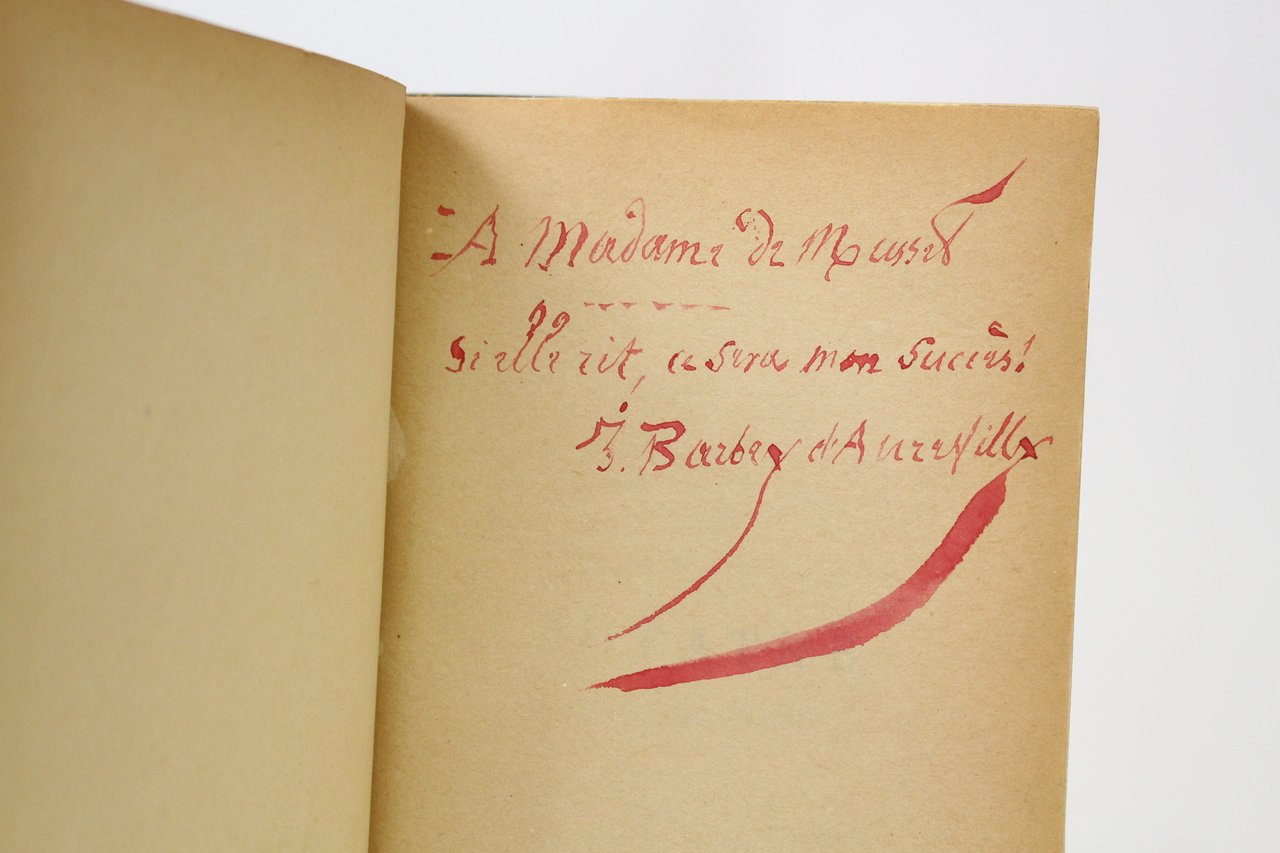 A Madame de Musset
si elle rit, ce sera mon succès!
J. Barbey d'Aurevilly